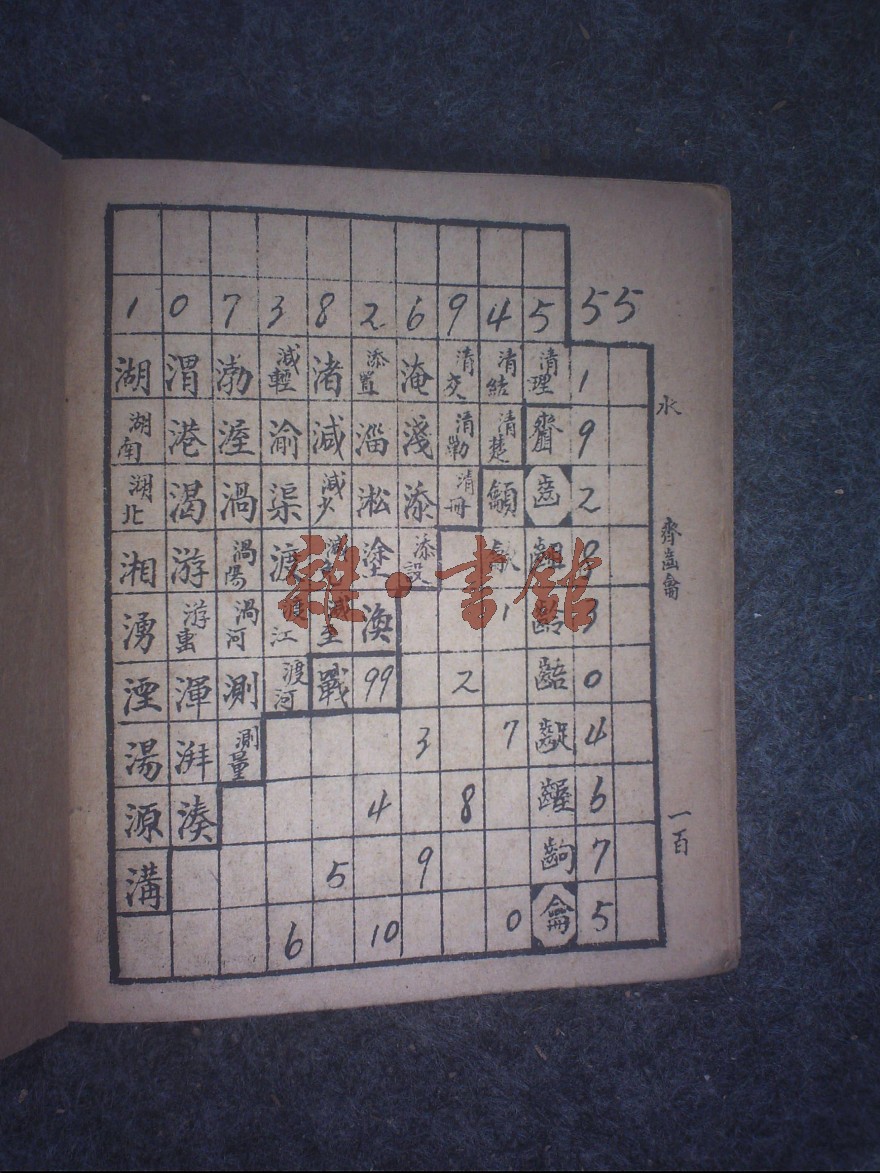 1 0 7 3 8 2 6 9 4 5 55
湖 渭 渤 減輕 渚 添置 淹 清交 清結 清理 1
湖南 港 渥 渝 減 淄 淺 清勦 清楚 齋 9
湖北 渴 渦 渠 減少 淞 添 清冊 龥 齒 2
湘 游 渦陽 渡 塗 添設 齟 8
湧 游擊 渦河 渡江 減至 渙 1 齡 3
湮 渾 測 渡河 戰 99 2 齬 0
湯 湃 測量 3 7 齪 4
源 湊 4 8 齷 6
溝 5 9 齣 7
6 10 0 龠 5
水
齊齒龠
一百
雜·書館